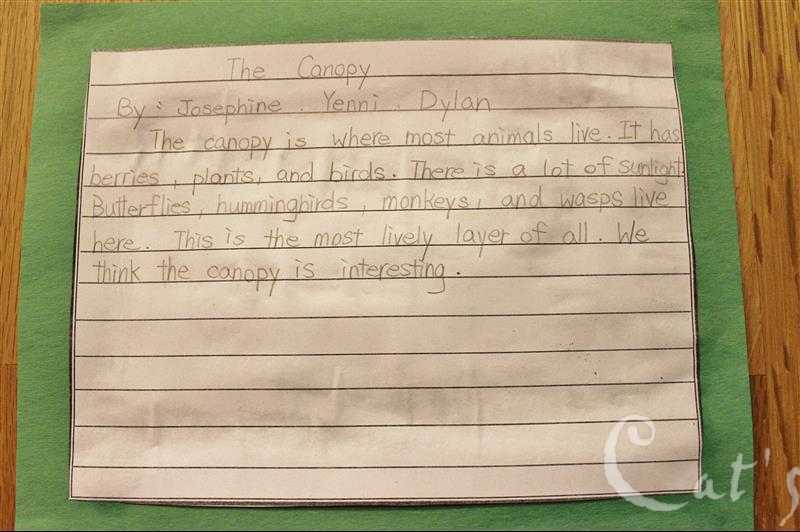 The Canopy
By: Josephine. Yenni. Dylan
The canopy is where most animals live. It has
berries, plants, and birds. There is a lot of sunlight.
Butterflies, hummingbirds, monkeys, and wasps live
here. This is the most lively layer of all. We
think the canopy is interesting.
Cat's